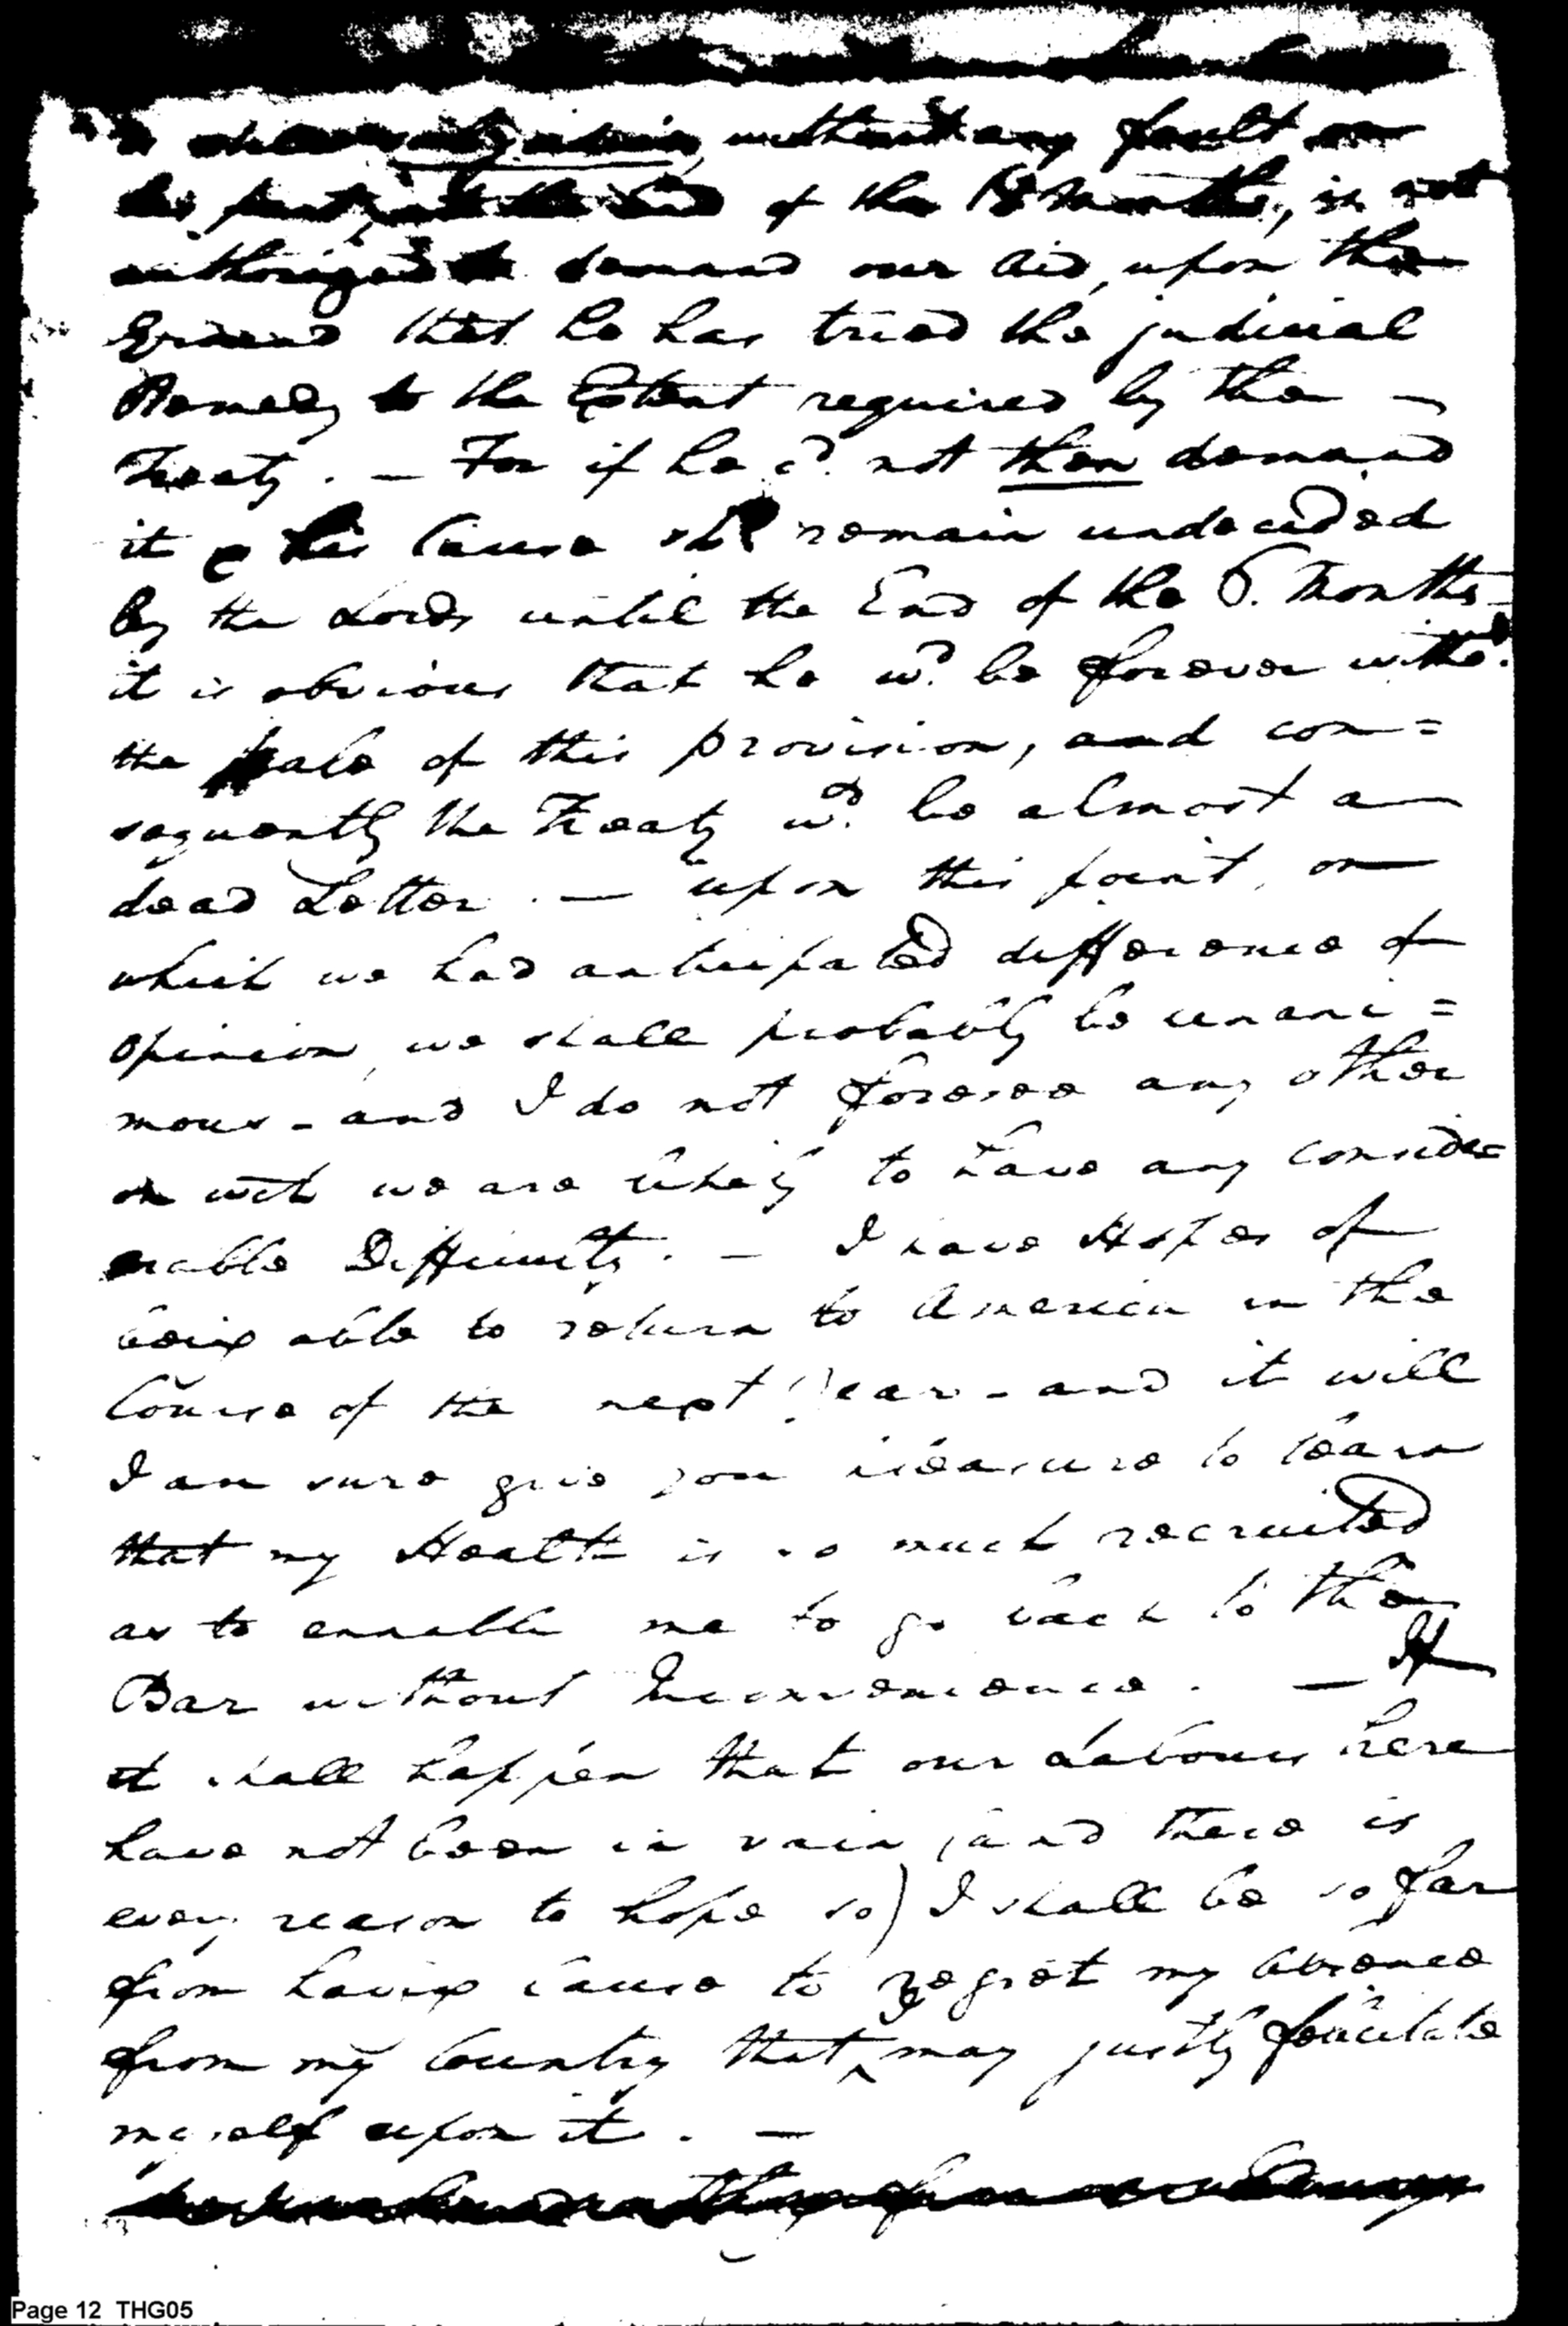 without any fault on
his part, at the End of the 18 Months, is not
authorized to demand our Aid, upon the
Ground that he has tried the judicial
Remedy to the Extent required by the —
Treaty. — For if he c.d not then demand
it & his Cause sh.d remain undecided
by the Lords until the End of the 6. Months —
it is obvious that he w.d be forever
the pale of this provision, and con=
sequently the Treaty w.d be almost a
dead Letter. — upon this point, on
which we had anticipated difference of
opinion, we shall probably be unani=
mous - and I do not foresee any other
on wch we are likely to have any conside=
rable Difficulty. — I have Hopes of
being able to return to America in the
Course of the next Year - and it will
I am sure give you pleasure to learn
that my Health is so much recruited
as to ennable me to go back to the
Bar without Inconvenience. — If
it shall happen that our Labours here
have not been in vain (and there is
every reason to hope so) I shall be so far
from having cause to regret my absence
from my Country that I may justly felicitate
myself upon it. —
Page 12 THG05